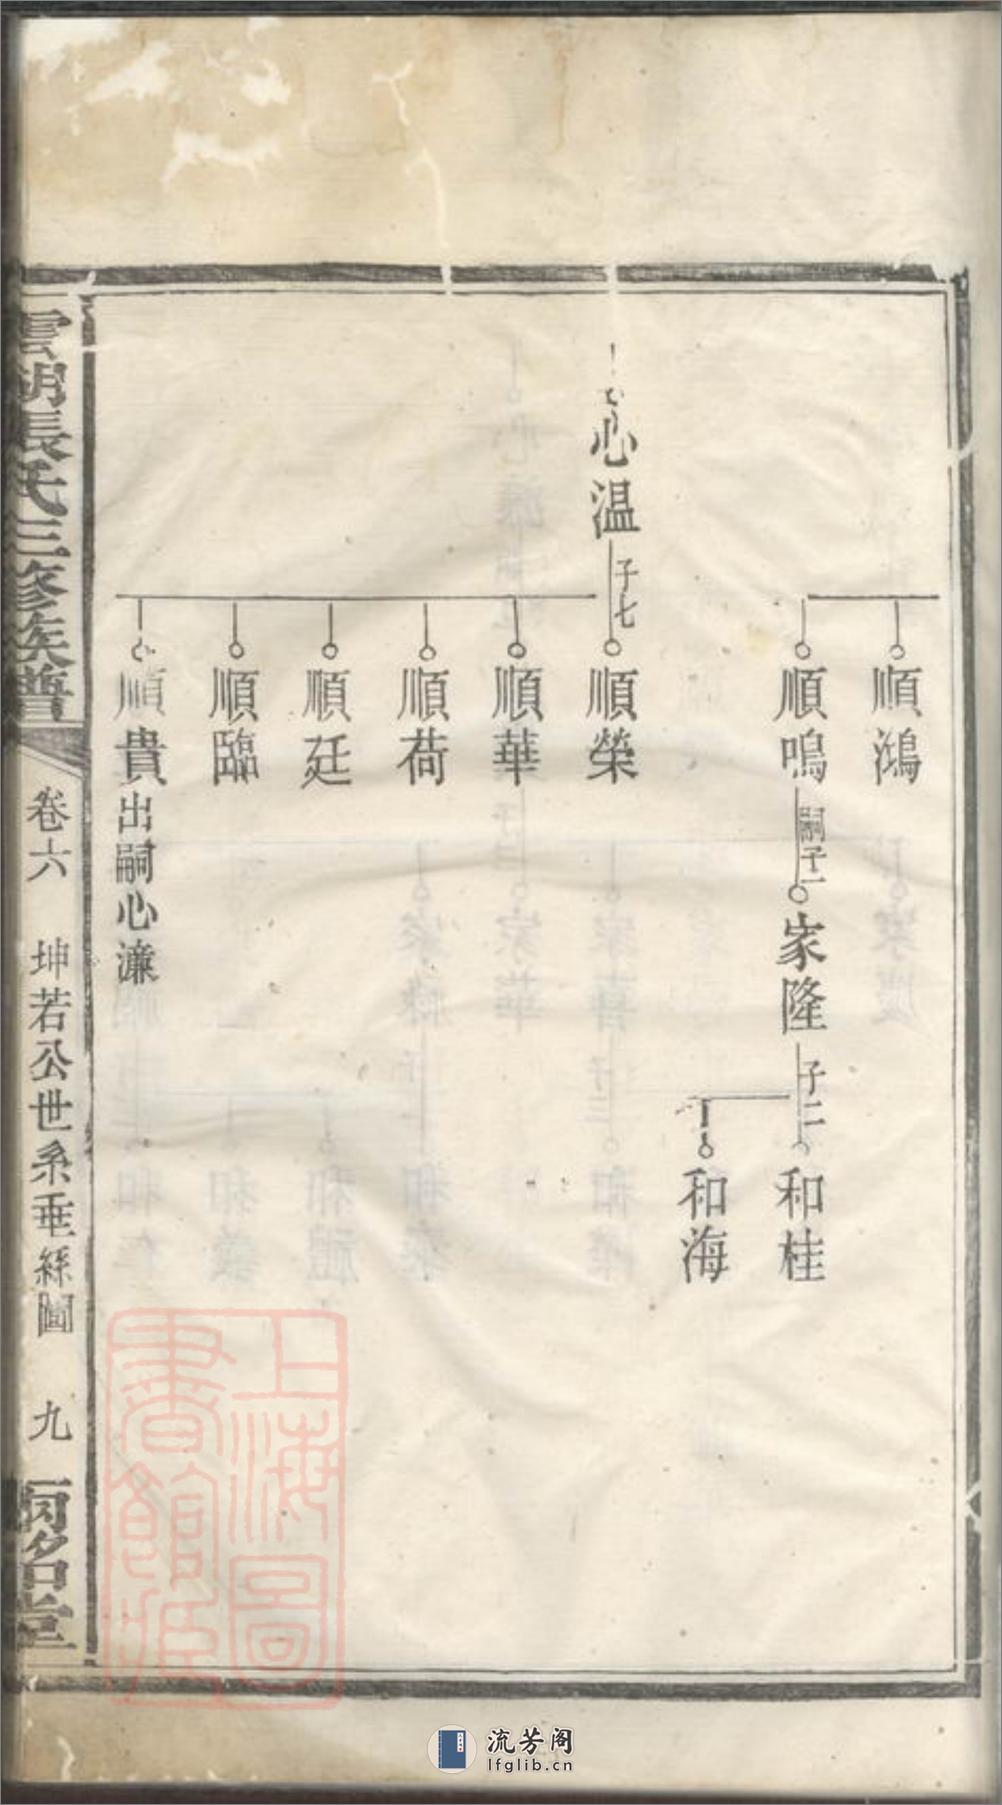 順鴻
順鳴
嗣子一
家隆
子二
和桂
和海
心温
子七
順榮
順華
順荷
順廷
順臨
順貴
出嗣心濂
雲湖張氏三修族譜
卷六
坤若公世系垂絲圖
九
兩銘堂
上海圖
書館藏
流芳阁
lfglib.cn